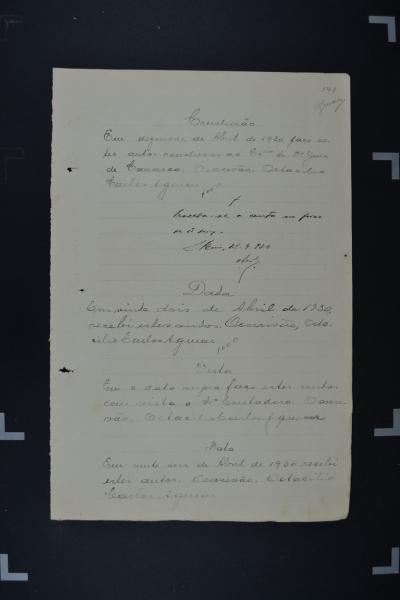 141
Conclusão
Em dezenove de Abril de 1930 faço es-
tes autos conclusos ao Exmo Sr Dr Juiz
de Comarca. O escrivão, Octacilio
Carlos Aguiar
Proceda-se a conta no prazo
da lei.
Data
Em vinte dois de Abril de 1930,
recebi estes autos. O escrivão, Octa-
cilio Carlos Aguiar
Vista
Em a data supra faço estes autos
com vista o Contador. O escri-
vão, Octacilio Carlos Aguiar
Data
Em vinte de Abril de 1930 recebi
estes autos. O escrivão, Octacilio
Carlos Aguiar